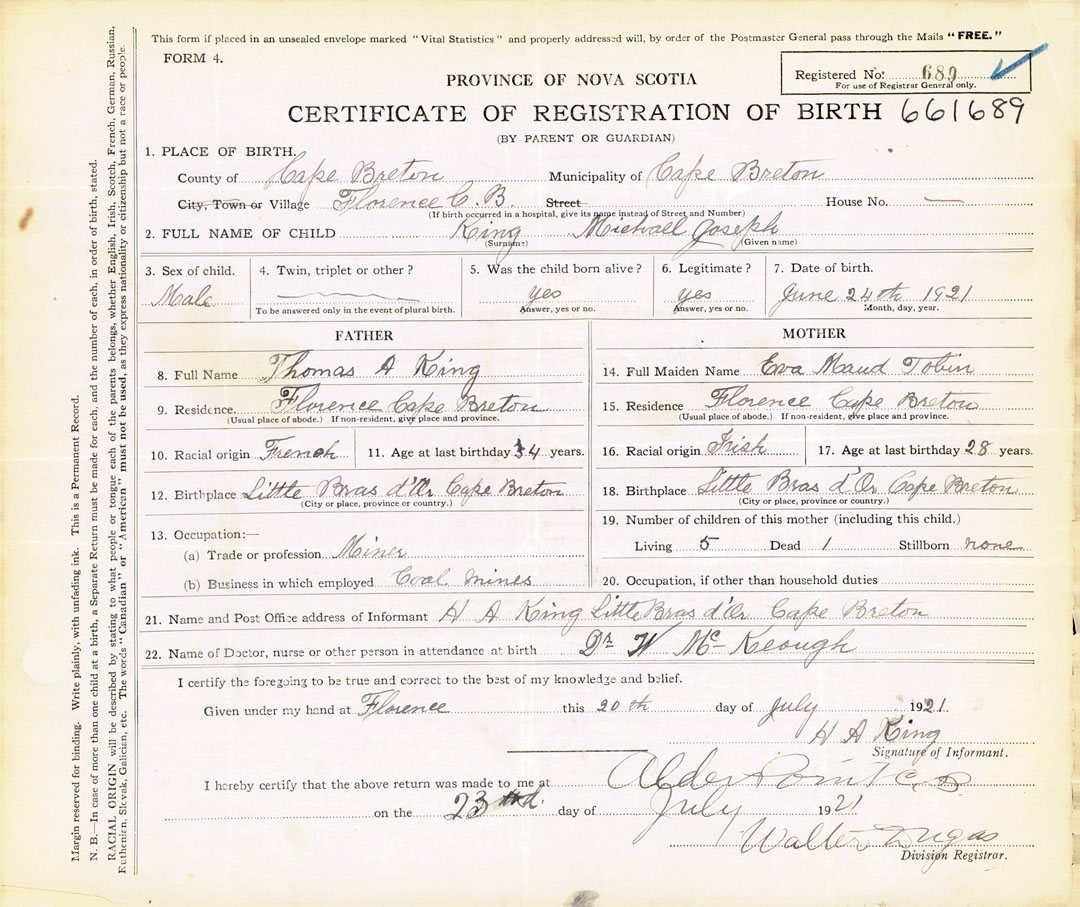 This form if placed in an unsealed envelope marked "Vital Statistics" and properly addressed will, by order of the Postmaster General pass through the Mails "FREE."
FORM 4.
Registered No: 689
For use of Registrar General only.
PROVINCE OF NOVA SCOTIA
CERTIFICATE OF REGISTRATION OF BIRTH 661689
(BY PARENT OR GUARDIAN)
1. PLACE OF BIRTH,
County of Cape Breton Municipality of Cape Breton
City, Town or Village Florence C. B. Street House No. —
(If birth occurred in a hospital, give its name instead of Street and Number)
2. FULL NAME OF CHILD King Michael Joseph
(Surname) (Given name)
3. Sex of child. 4. Twin, triplet or other? 5. Was the child born alive? 6. Legitimate? 7. Date of birth.
Male yes yes June 24th 1921
To be answered only in the event of plural birth. Answer, yes or no. Answer, yes or no. Month, day, year.
FATHER
8. Full Name Thomas A King
9. Residence. Florence Cape Breton
(Usual place of abode.) If non-resident, give place and province.
10. Racial origin French 11. Age at last birthday 34 years.
12. Birthplace Little Bras d'Or Cape Breton
(City or place, province or country.)
13. Occupation:—
(a) Trade or profession Miner
(b) Business in which employed Coal mines
MOTHER
14. Full Maiden Name Eva Maud Tobin
15. Residence Florence Cape Breton
(Usual place of abode.) If non-resident, give place and province.
16. Racial origin Irish 17. Age at last birthday 28 years.
18. Birthplace Little Bras d'Or Cape Breton
(City or place, province or country.)
19. Number of children of this mother (including this child.)
Living 5 Dead 1 Stillborn none
20. Occupation, if other than household duties
21. Name and Post Office address of Informant H A King Little Bras d'Or Cape Breton
22. Name of Doctor, nurse or other person in attendance at birth Dr W Mc Keough
I certify the foregoing to be true and correct to the best of my knowledge and belief.
Given under my hand at Florence this 20th day of July 1921.
H A King
Signature of Informant.
I hereby certify that the above return was made to me at Alder Point C. B
on the 23rd. day of July 1921
Walter Dugas
Division Registrar.
Margin reserved for binding. Write plainly, with unfading ink. This is a Permanent Record.
N. B.—In case of more than one child at a birth, a Separate Return must be made for each, and the number of each, in order of birth, stated.
RACIAL ORIGIN will be described by stating to what people or tongue each of the parents belongs, whether English, Irish, Scotch, French, German, Russian,
Ruthenien, Slovak, Galician, etc. The words "Canadian" or "American" must not be used, as they express nationality or citizenship but not a race or people.